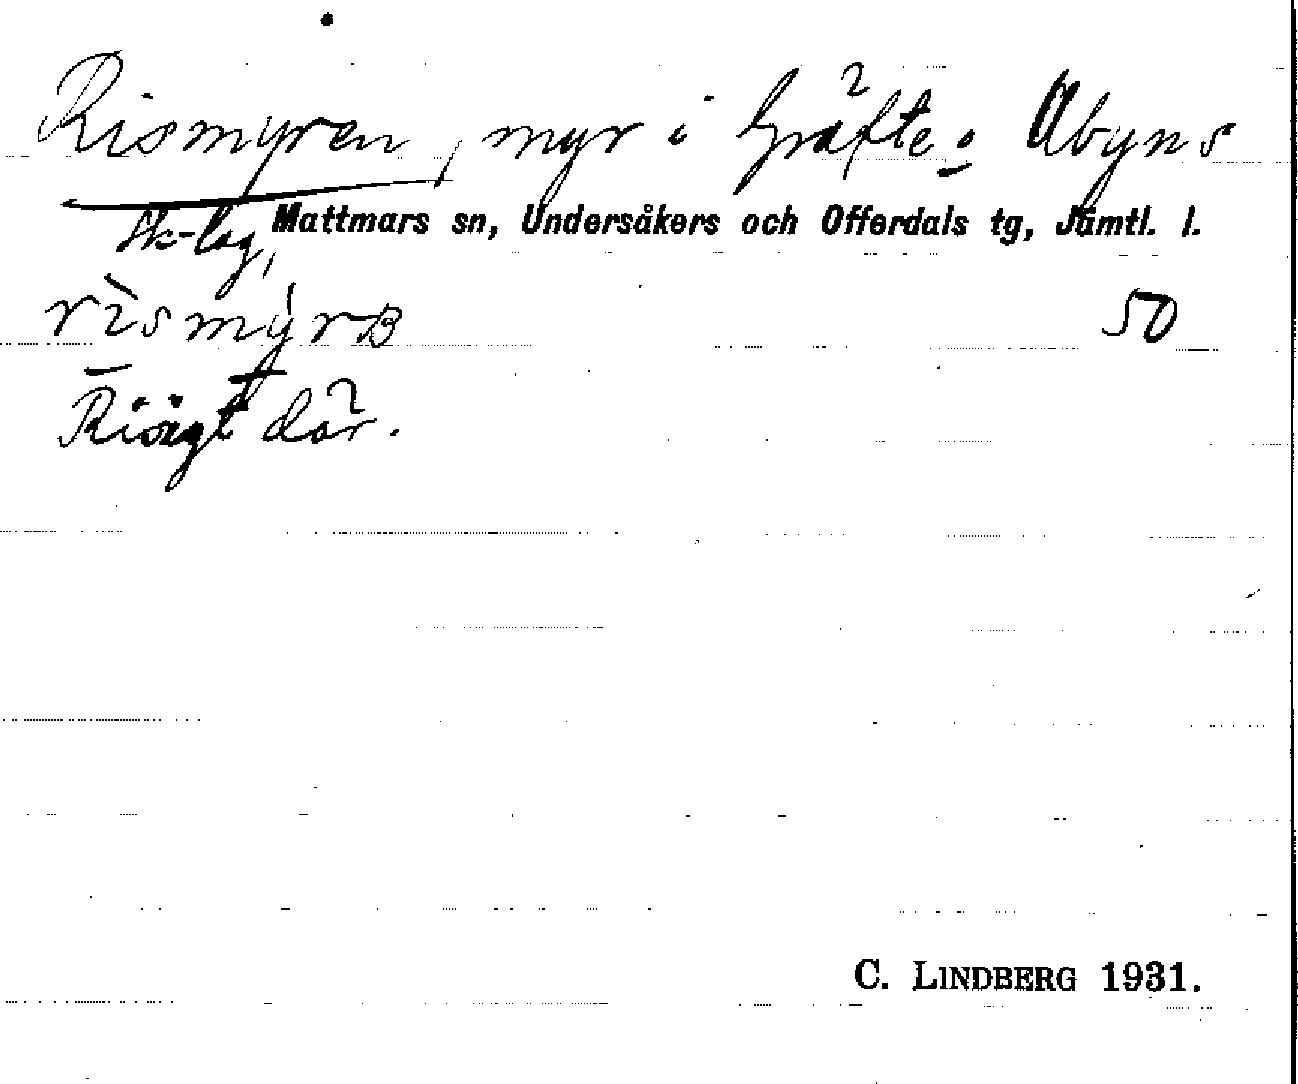 Rismyren, myr i Gräfte o Åbyns
sk-lag, Mattmars sn, Undersåkers och Offerdals tg, Jämtl. l.
rismyrʙ 50
Risigt där.
C. LINDBERG 1931.